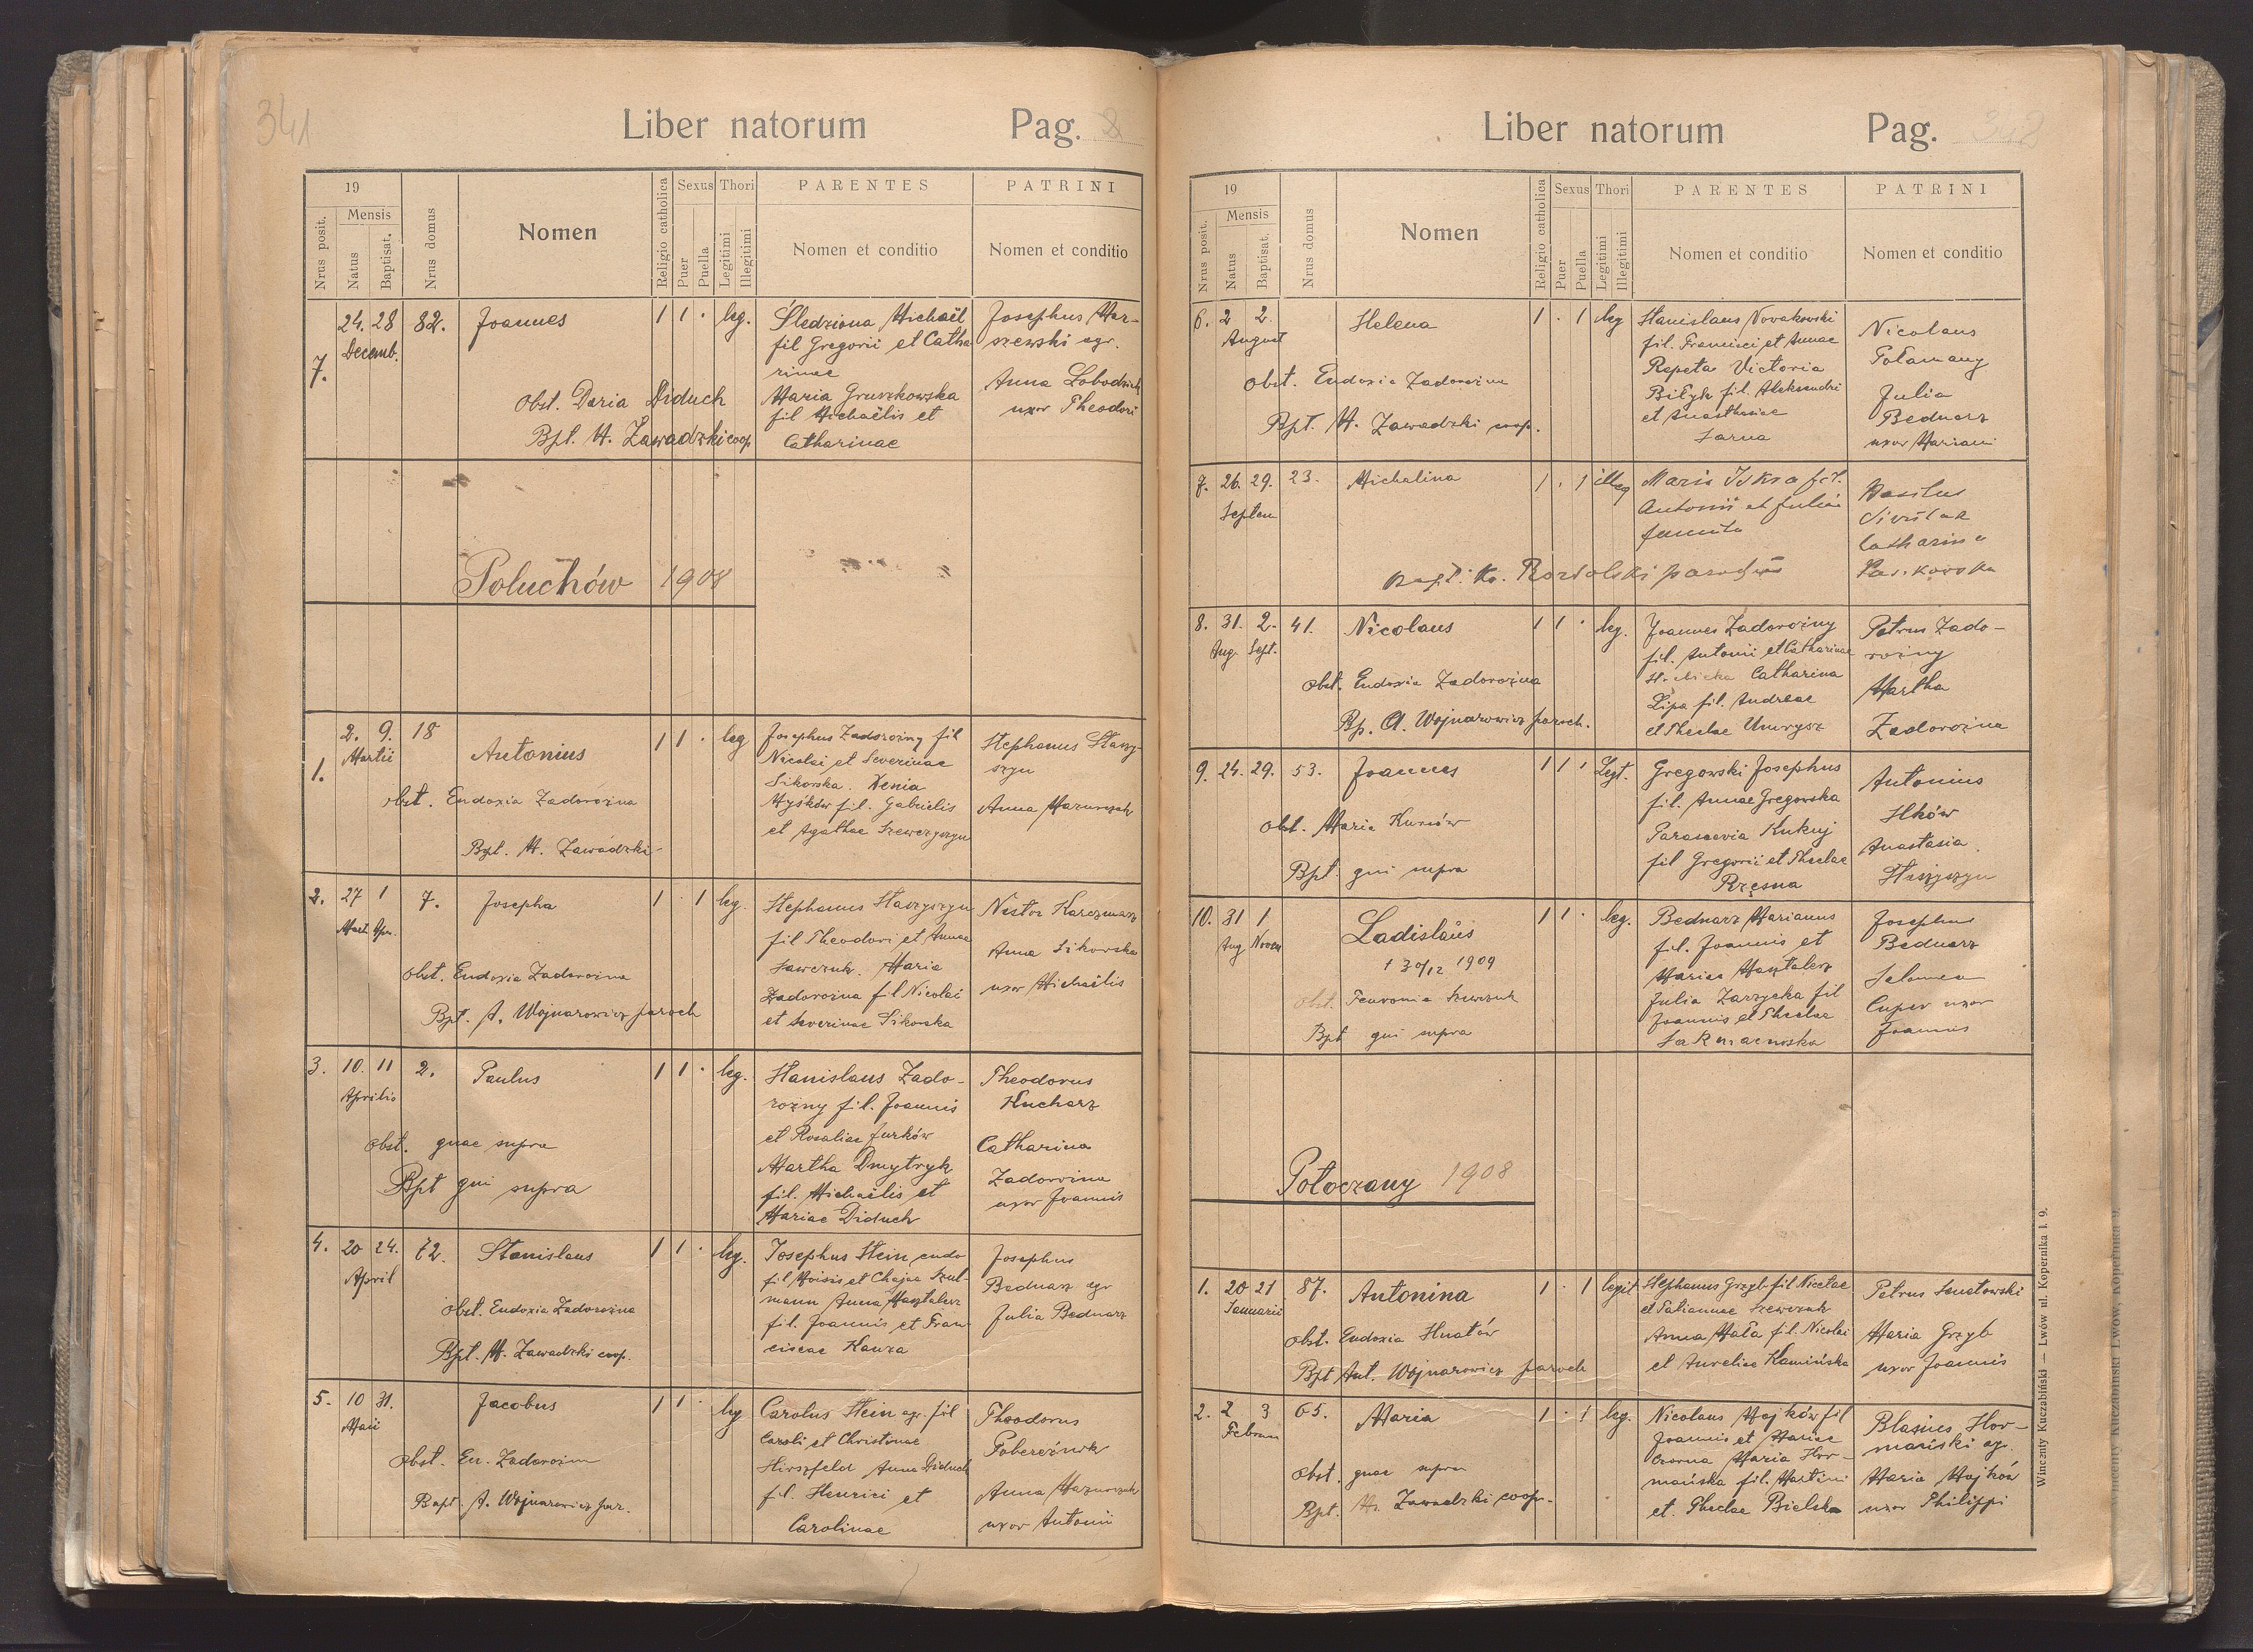 341
Liber natorum Pag. 2
19
Mensis
Nrus posit.
Natus
Baptisat.
Nrus domus
Nomen
Religio catholica
Sexus
Puer
Puella
Thori
Legitimi
Illegitimi
PARENTES
Nomen et conditio
PATRINI
Nomen et conditio
7. 24. 28 82. Joannes 1 1 . leg.
Decemb.
Obst. Daria Diduch
Bpt. M. Zawadzki coop
Śledziona Michaël
fil Gregorii et Catha
rinae
Maria Gruszkowska
fil Michaëlis et
Catharinae
Josephus Mar-
szewski agr.
Anna Łobodziak
uxor Theodori
Poluchów 1908
1. 2. 9. 18 Antonius 1 1 . leg
Martii
obst. Eudoxia Zadorożna
Bpt. M. Zawadzki
Josephus Zadorożny fil
Nicolai et Severinae
Sikorska. Xenia
Myśków fil. Gabrielis
et Agathae Szewczyszyn
Stephanus Staszy-
szyn
Anna Mazurczak
2. 27 1 7. Josepha 1 . 1 leg.
Mart Apr.
Obst. Eudoxia Zadorożna
Bpt. A. Wojnarowicz paroch
Stephanus Staszyszyn
fil Theodori et Annae
Sawczuk. Maria
Zadorożna fil Nicolai
et Severinae Sikorska
Nestor Karczmarz
Anna Sikorska
uxor Michaëlis
3. 10. 11 2. Paulus 1 1 . leg.
Aprilis
Obst. quae supra
Bpt qui supra
Stanislaus Zado-
rożny fil. Joannis
et Rosaliae Jurków
Martha Dmytryk
fil. Michaëlis et
Mariae Diduch
Theodorus
Kucharz
Catharina
Zadorożna
uxor Joannis
4. 20 24. 62. Stanislaus 1 1 . leg.
April
Obst. Eudoxia Zadorożna
Bpt. M. Zawadzki coop.
Josephus Stein
fil Moisis et Chajae Szul-
mann Anna Masztalerz
fil. Joannis et Fran-
ciscae Kauza
Josephus
Bednarz agr
Julia Bednarz
5. 10 31. Jacobus 1 1 . leg
Maii
Obst. Eu. Zadorożna
Bapt. A. Wojnarowicz par.
Carolus Stein agr. fil
Caroli et Christinae
Hirszfeld Anna Diduch
fil. Henrici et
Carolinae
Theodorus
Pobereźnik
Anna Mazurczak
uxor Antonii
Liber natorum Pag. 342
19
Mensis
Nrus posit.
Natus
Baptisat.
Nrus domus
Nomen
Religio catholica
Sexus
Puer
Puella
Thori
Legitimi
Illegitimi
PARENTES
Nomen et conditio
PATRINI
Nomen et conditio
6. 2 2. Helena 1 . 1 leg
August
Obst. Eudoxia Zadorożna
Bpt. M. Zawadzki coop.
Stanislaus Novakowski
fil. Francisci et Annae
Repeta Victoria
Biłyk fil. Aleksandri
et Anasthasiae
Sarna
Nicolaus
Połamany
Julia
Bednarz
uxor Mariani
7. 26. 29. 23. Michalina 1 . 1 illeg
Septem
Maria Iskra fil.
Antonii et Juliae
Basilus
Catharina
8. 31. 2. 41. Nicolaus 1 1 . leg.
Aug. Sept.
Obst. Eudoxia Zadorożna
Bp. A. Wojnarowicz paroch.
Joannes Zadorożny
fil. Antonii et Catharinae
Catharina
Lipa fil. Andreae
et Theclae
Petrus Zado-
rożny
Martha
Zadorożna
9. 24. 29. 53. Joannes 1 1 . Legt.
Obst. Maria Kuneów
Bpt. qui supra
Gregowski Josephus
fil. Annae Gregowska
Parascevia Kukuj
fil Gregorii et Theclae
Rzęsna
Antonius
Ilków
Anastasia
Staszyszyn
10. 31 1 Ladislaus 1 1 . leg.
Aug Novem
† 30/12 1909
Obst. Feuronia Szewczuk
Bpt qui supra
Bednarz Marianus
fil. Joannis et
Mariae Masztalerz
Julia Zarzycka fil
Joannis et Theclae
Josephus
Bednarz
Salomea
Cuper uxor
Joannis
Potoczany 1908
1. 20 21 87. Antonina 1 . 1 legit
Januarii
Obst. Eudoxia Hnatów
Bpt Ant. Wojnarowicz paroch
Stephanus Grzyb fil Nicetae
et Tatiannae Szewczuk
Anna Mała fil. Nicolai
et Aureliae Kamińska
Petrus Smutowski
Maria Grzyb
uxor Joannis
2. 2 3 65. Maria 1 . 1 leg.
Februar
Obst. quae supra
Bpt. M. Zawadzki coop.
Nicolaus Hajków fil
Joannis et Mariae
Czorna Maria Hor-
mańska fil. Martini
et Theclae Bielska
Blasius Hor-
mański agr.
Maria Hajków
uxor Philippi
Winczenty Kuczabiński — Lwów ul. Kopernika l. 9.